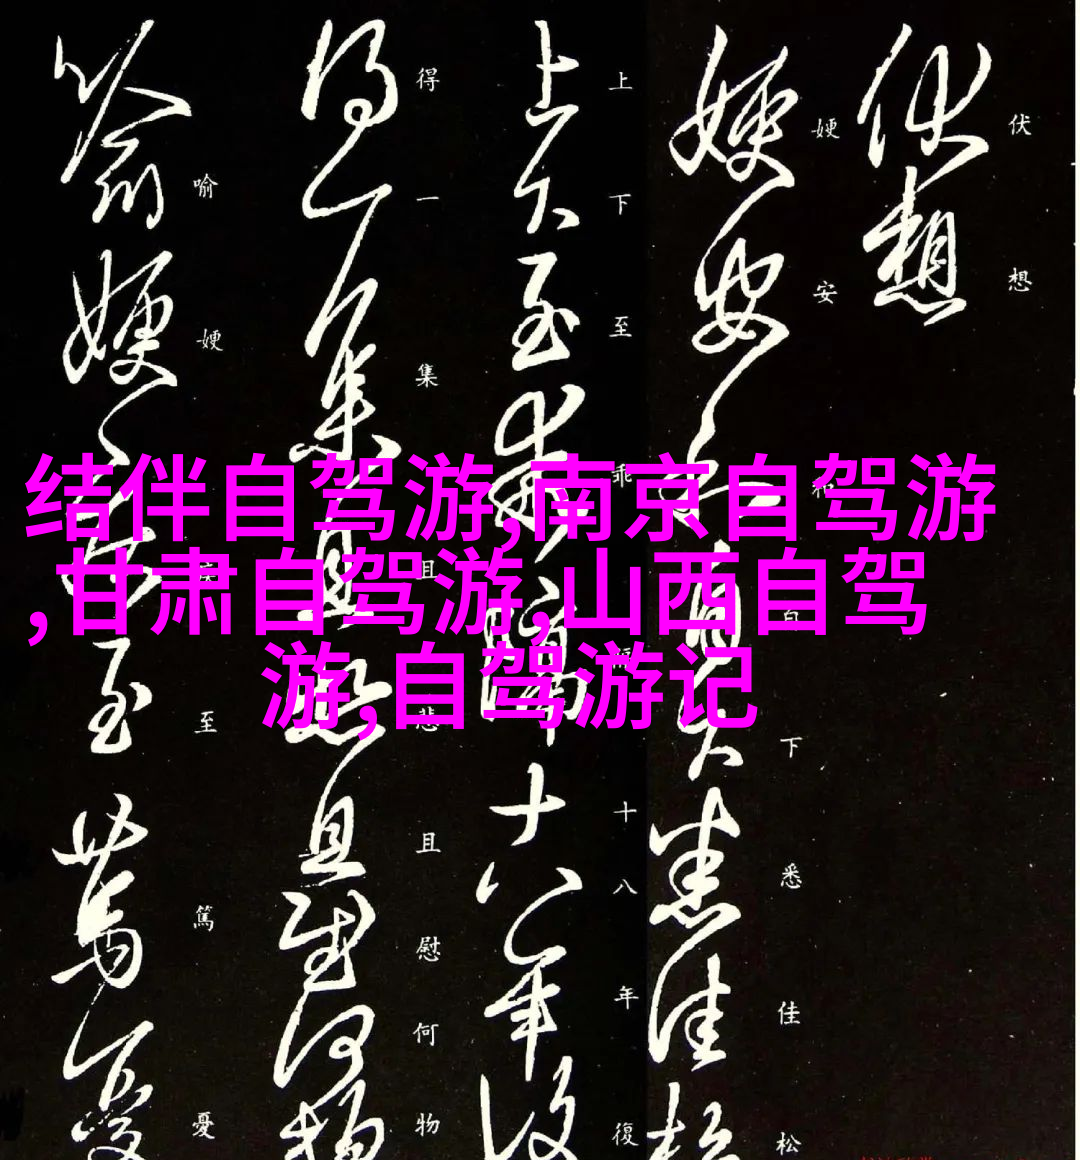 伏想
㛐安和自下悉佳松
上下至乖隔十八年復
得一集且悲且慰何物
喻㛐疾至篤憂
结伴自驾游,南京自驾游
,甘肃自驾游,山西自驾
游,自驾游记